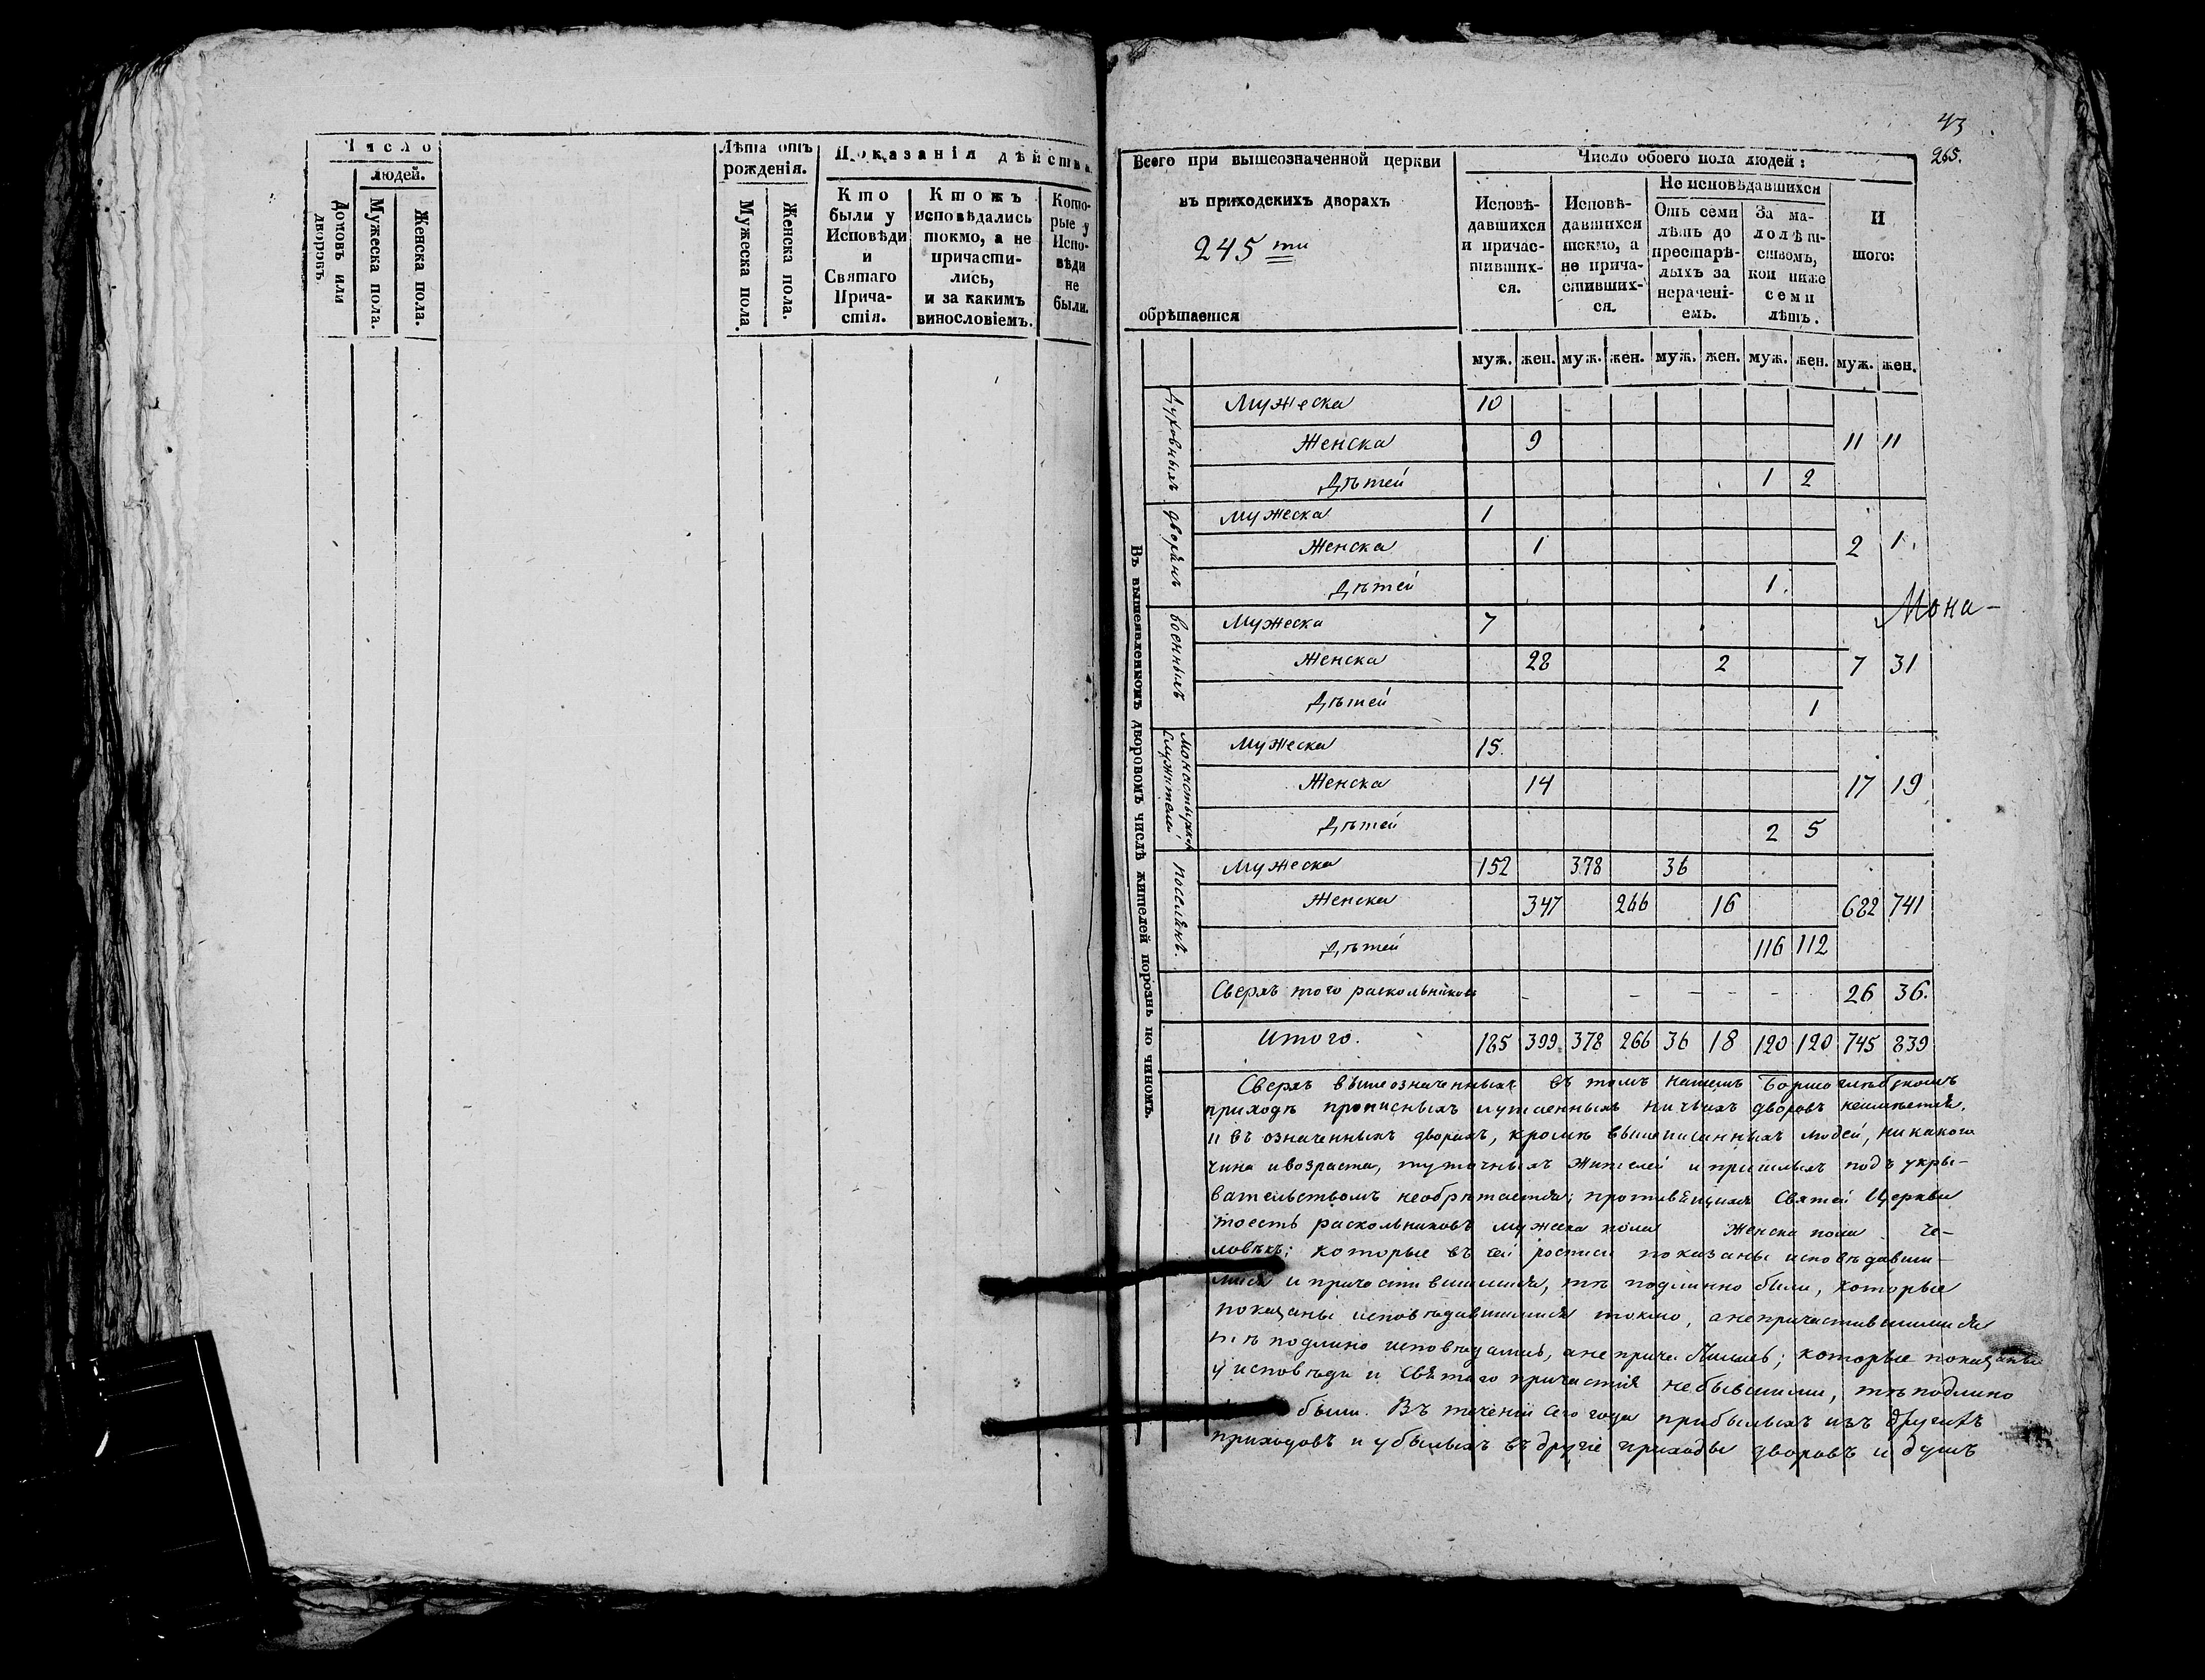 Число
людей.
Домовъ или
дворовъ.
Мужеска пола.
Женска пола.
Лѣта отъ
рожденія.
Мужеска пола.
Женска пола.
Показанія дѣйства
Кто
были у
Исповѣди
и
Святаго
Прича-
стія.
Ктожъ
исповѣдались
токмо, а не
причасти-
лись,
и за какимъ
винословіемъ.
Кото-
рые у
Испо-
вѣди
не
были.
43
265.
Всего при вышеозначенной церкви
въ приходскихъ дворахъ
245 ти
обрѣтается
Число обоего пола людей:
Исповѣ-
давшихся
и причас-
тивших-
ся.
Исповѣ-
давшихся
токмо, а
не прича-
стивших-
ся.
Не исповѣдавшихся
Отъ семи
лѣтъ до
престарѣ-
лыхъ за
нерачені-
емъ.
За ма-
лолѣт-
ствомъ,
кои ниже
семи
лѣтъ.
И
того:
муж. жен. муж. жен. муж. жен. муж. жен. муж. жен.
Въ вышеявленномъ дворовомъ числѣ жителей порознь по чиномъ.
Духовныхъ
Мужеска 10
Женска 9 11 11
Дѣтей 1 2
Дворянъ
Мужеска 1
Женска 1 2 1.
Дѣтей 1.
Мона-
Военныхъ
Мужеска 7
Женска 28 2 7 31
Дѣтей 1
служителей
Мужеска 15.
Женска 14 17 19
Дѣтей 2 5
Поселянъ.
Мужеска 152 378 36
Женска 347 266 16 682 741
Дѣтей 116 112
Сверхъ того раскольниковъ - - - - - - 26 36.
Итого. 185 399 378 266 36 18 120 120 745 839
Сверхъ вышеозначенныхъ въ томъ нашемъ Борисоглѣбскомъ
приходѣ прописныхъ и утаенныхъ ничьихъ дворовъ неимѣется,
и въ означенныхъ дворахъ, кромѣ вышеписанныхъ людей, никакого
чина и возраста, туточныхъ жителей и пришлыхъ подъ укры-
вательствомъ необрѣтается; противящихся Святей Церкви
тоесть раскольниковъ мужеска пола женска пола че-
ловѣкъ; которые въ сей росписи показаны исповѣдавши-
мися и причастившимися, тѣ подлинно были, которые
показаны исповѣдавшимися токмо, анепричастившимися
тѣ подлино исповѣдались, анепричастились; которые показаны
у исповѣди и Святаго причастія небывшими, тѣ подлино
были. Въ теченіи сего года прибылыхъ изъ другихъ
приходовъ и убылыхъ въ другіе приходы дворовъ и душъ